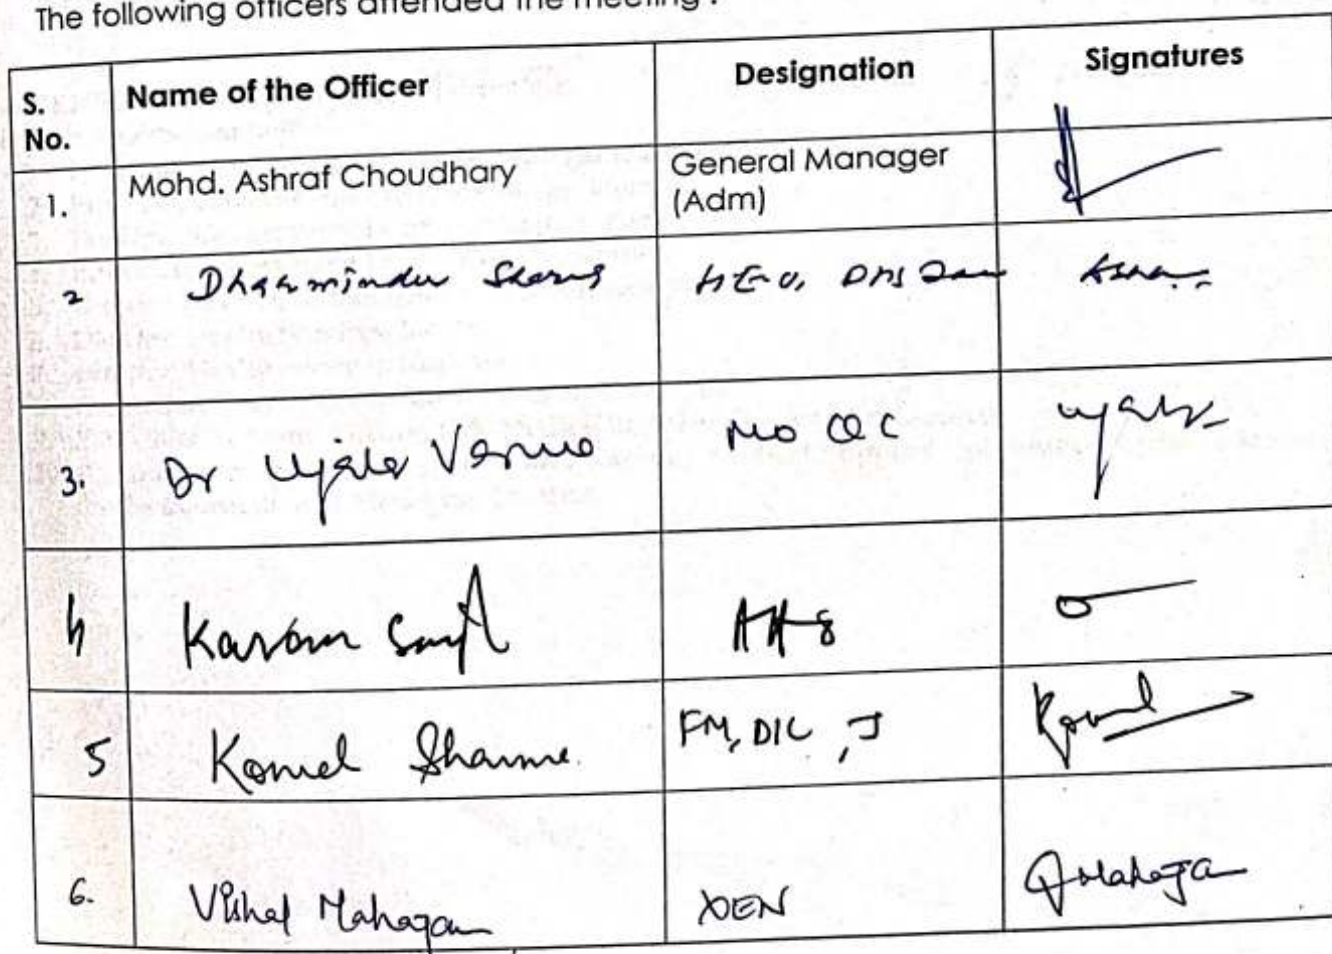 The following officers attended the meeting :
S. No. Name of the Officer Designation Signatures
1. Mohd. Ashraf Choudhary General Manager
(Adm)
2 Dharminder Sharma HEO,
3. Dr Ujala Verma MO QC
4 Karam Singh
5 Komal Sharma FM, DIC, J Komal
6. Vishal Mahajan XEN